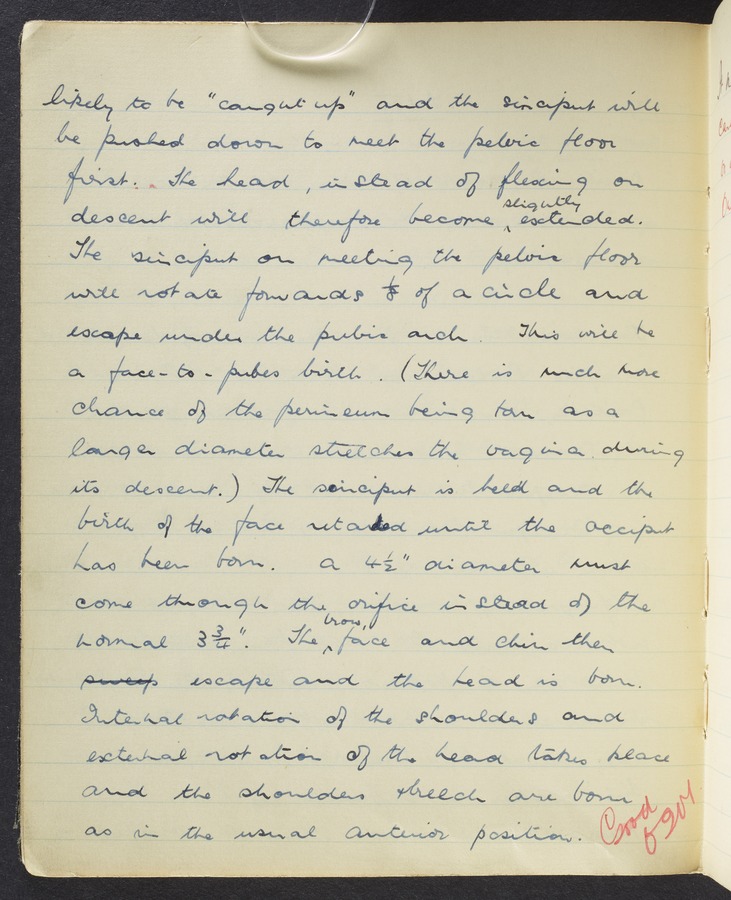 likely to be "caught up" and the sinciput will
be pushed down to meet the pelvic floor
first. The head, instead of flexing on
descent will therefore become slightly extended.
The sinciput on meeting the pelvic floor
will rotate forwards 1/8 of a circle and
escape under the pubic arch. This will be
a face-to-pubes birth. (There is much more
chance of the perineum being torn as a
larger diameter stretches the vagina during
its descent.) The sinciput is held and the
birth of the face retarded until the occiput
has been born. A 4½" diameter must
come through the orifice instead of the
normal 3¾". The brow, face and chin then
sweep escape and the head is born.
Internal rotation of the shoulders and
external rotation of the head takes place
and the shoulders + breech are born
as in the usual anterior position.
Good